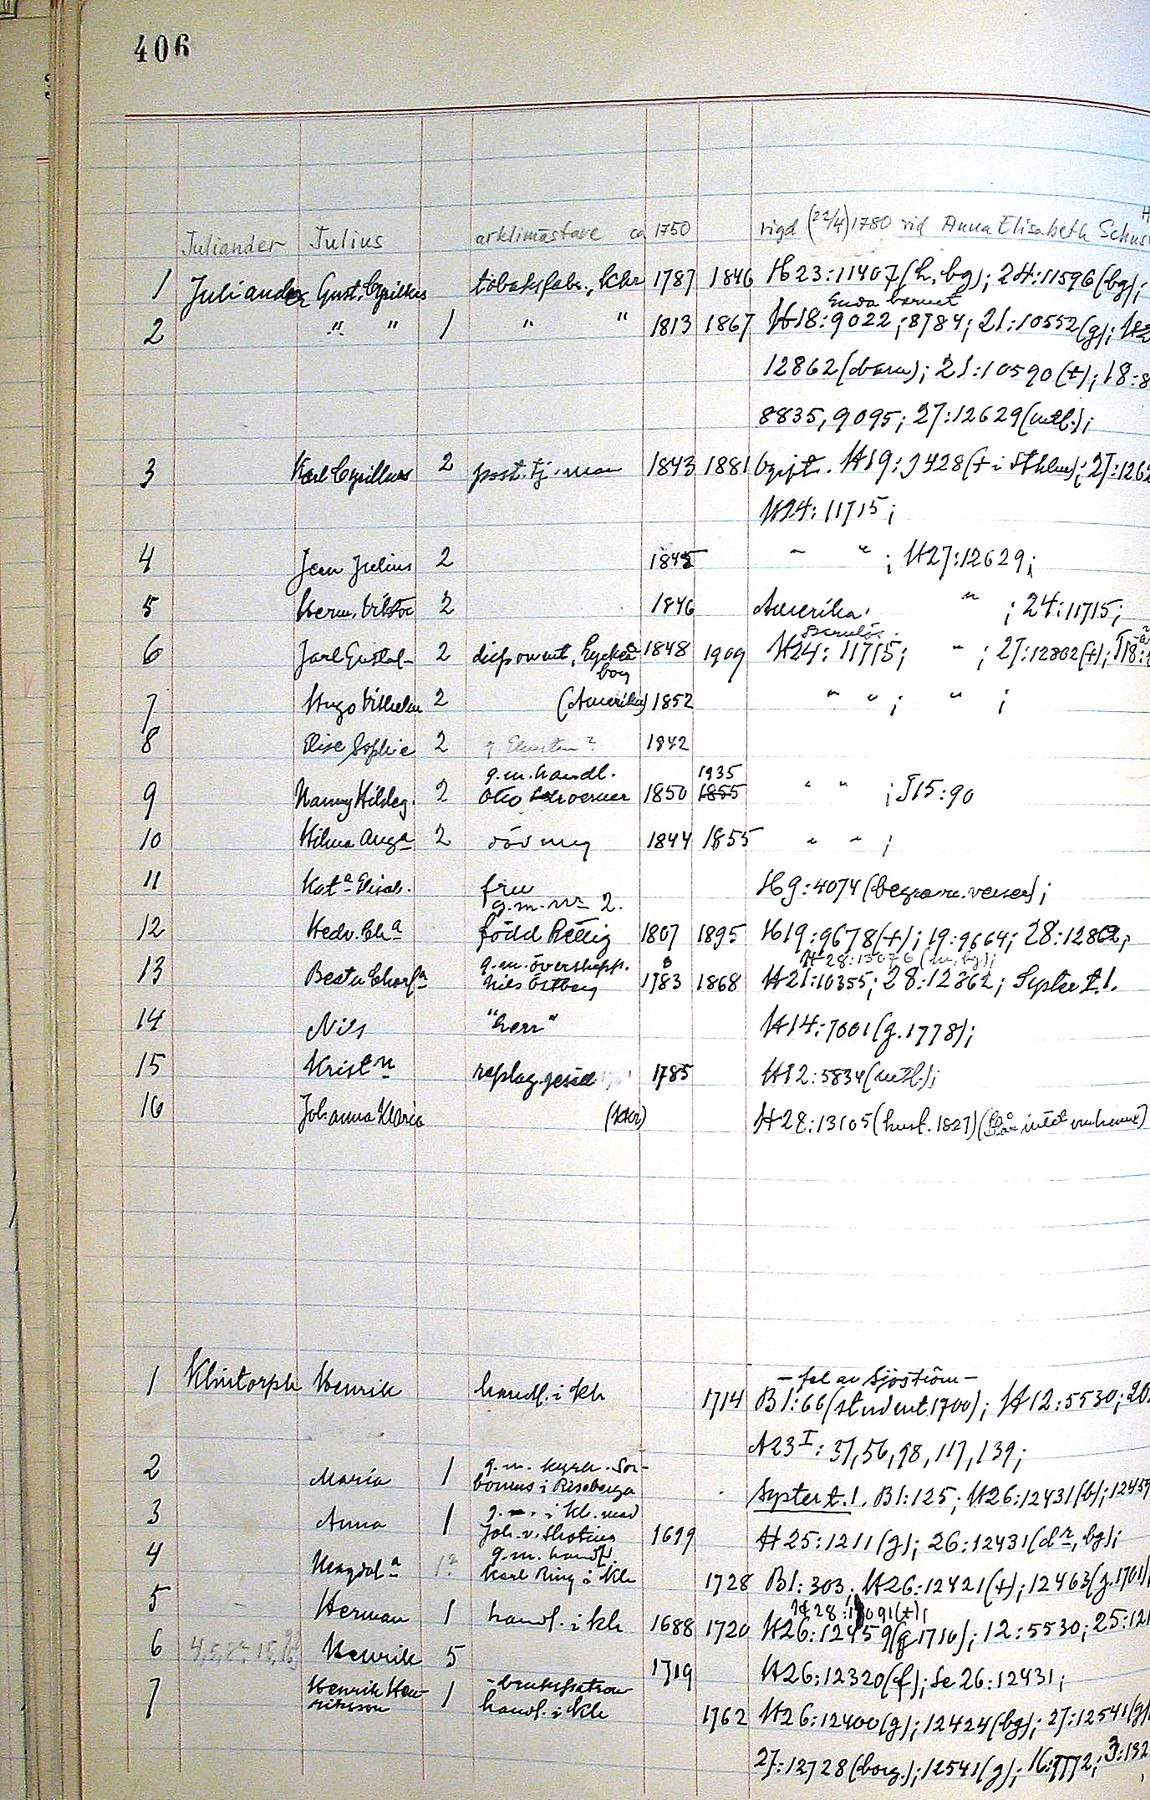 406
Juliander Julius arklimästare ca 1750 vigd (22/4) 1780 vid Anna Elisabeth
1 Juliander Gust. Cyrillus tobaksfabr., Khr 1787 1846 H23:11407 (h, bg); 24:11596 (bg);
Enda barnet
2 " " 1 " " 1813 1867 H18:9022; 8784; 21:10552 (g);
12862 (barn); 21:10590 (+); 18:8
8835, 9095; 27:12629 (utl.);
3 Karl Cyrillus 2 post.tj.man 1843 1881 Ogift. H19:9428 (+ i Sthlm); 27:1262
H24:11715;
4 Jean Julius 2 1845 " " ; H27:12629;
5 Herm. Viktor 2 1846 Amerika. " ; 24:11715;
Barnlös.
6 Jarl Gustaf 2 disponent, 1848 1909 H24:11715; " ; 27:12862 (+);
7 Hugo Vilhelm 2 (Amerika) 1852 " " ; " ;
8 Elise Sophie 2 1842
g.m. handl. 1935
9 Nanny Hildeg. 2 Otto 1850 1855 " " ; J15:90
10 Hilma Auga 2 död ung 1844 1855 " " ;
11 Kata Elisab. fru H9:4074 (begravn. verser);
g.m. nr 2.
12 Hedv. Cha född Rettig 1807 1895 H19:9678 (+); 19:9664; 28:12862;
g.m. överskepp. H28:13076 (m, bg);
13 Beata Charl.a Nils Östberg 1783 1868 H21:10355; 28:12862; Syster t. 1.
14 Nils "herr" H14:7001 (g. 1778);
15 Kristn 1785 H12:5834 (utl.);
16 Johanna Maria (Khr) H28:13105 (husf. 1827) (
1 Klintorph Henrik handl. i Khr - fel av Sjöström -
1714 B1:66 (student 1700); H12:5530; 20
A23 I: 37, 56, 98, 117, 139;
g.m. kyrkh. Sor-
2 Maria 1 bonius i Riseberga Syster t. 1. B1:125; H26:12431 (b); 12459
g. i Khr. med
3 Anna 1 Joh. v. 1699 H25:1211 (g); 26:12431 (dr, bg);
g.m. handl.
4 Magdal.a 1? Karl Ring i Khr 1728 B1:303; H26:12421 (+); 12463 (g. 1701)
H28:13091 (+);
5 Herman 1 handl. i Khr 1688 1720 H26:12459 (g 1710); 12:5530; 25:121
6 Henrik 5 1719 H26:12320 (f); Se 26:12431;
7 Henrik Hen-
riksson 1 handl. i Khr 1762 H26:12400 (g); 12424 (bg); 27:12541 (g)
27:12728 (borg.); 12541 (g); 16:7772; 3:132